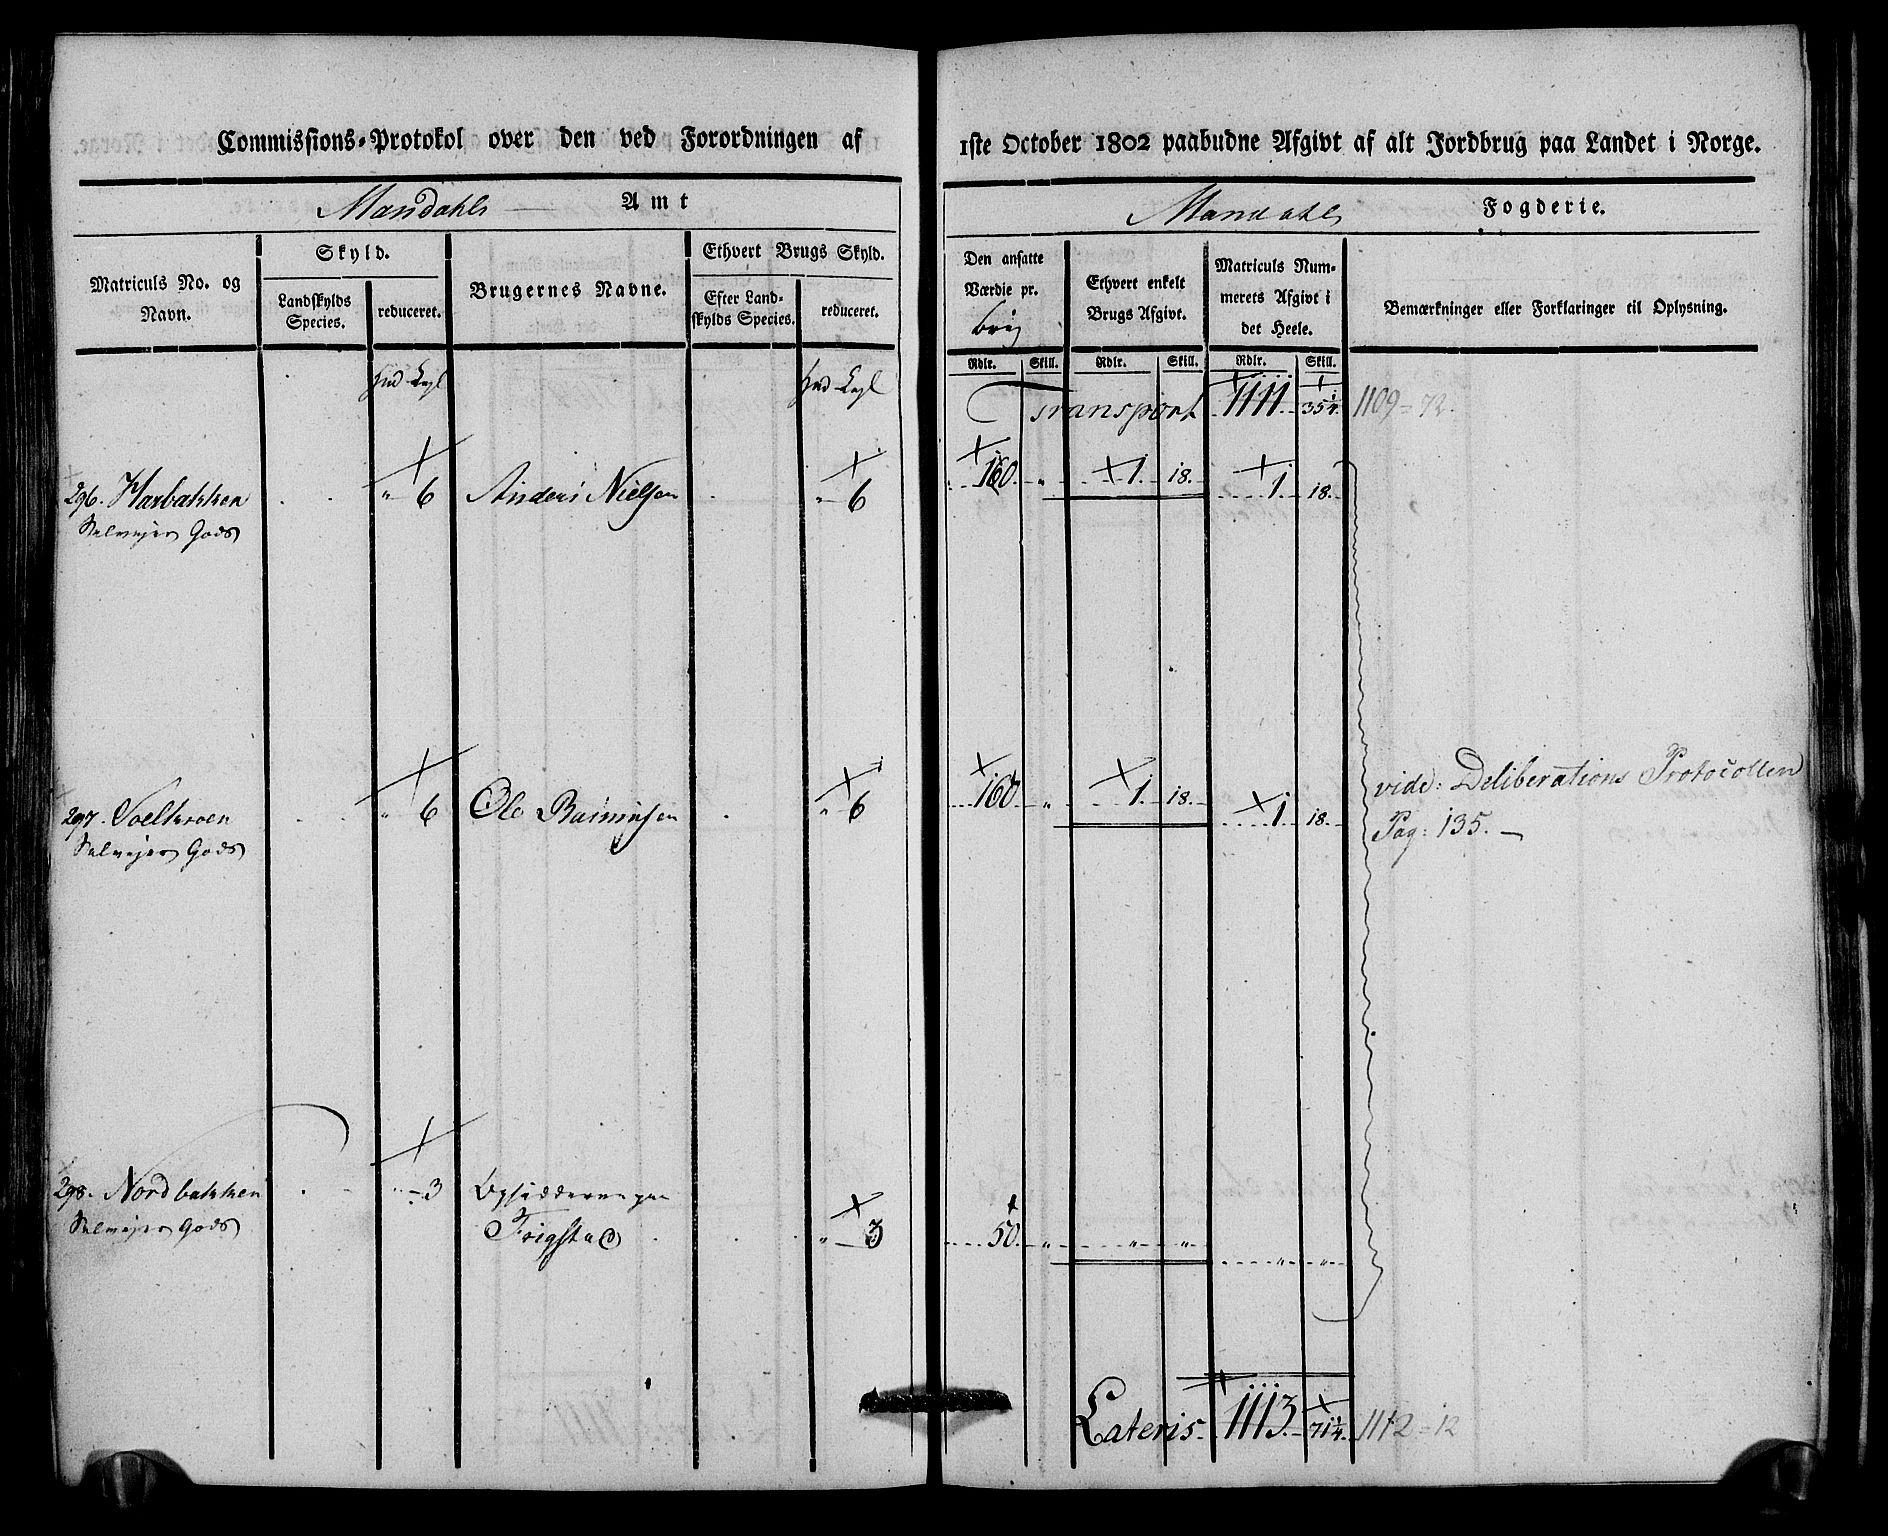 Commissions-Protokol over den ved Forordningen af 1ste October 1802 paabudne Afgivt af alt Jordbrug paa Landet i Norge.
Mandahls Amt
Mandahls Fogderie.
Matriculs No. og Navn.
Skyld.
Landskylds Species.
reduceret.
Brugernes Navne.
Ethvert Brugs Skyld.
Efter Landskylds Species.
reduceret.
Den ansatte Værdie pr.
Ethvert enkelt Brugs Afgivt.
Matriculs Nummerets Afgivt i det Heele.
Bemærkninger eller Forklaringer til Oplysning.
Rdlr. Skill. Rdlr. Skill. Rdlr. Skill.
Transport 1111. 35¼. 1109 = 72.
296. Harbakken " 6 Anders Nielsen " 6 160 " 1. 18. 1. 18.
Selvejer Gods
297. " 6 Ole Rasmusen " 6 160 " 1. 18. 1. 18.
Selvejer Gods
vide: Deliberations Protocollen
Pag: 135.
298. Nordbakken - 3 Opsidderne paa
Selvejer Gods Frigstad " 3 50. " " " " "
Lateris. 1113. 71¼. 1112 = 12